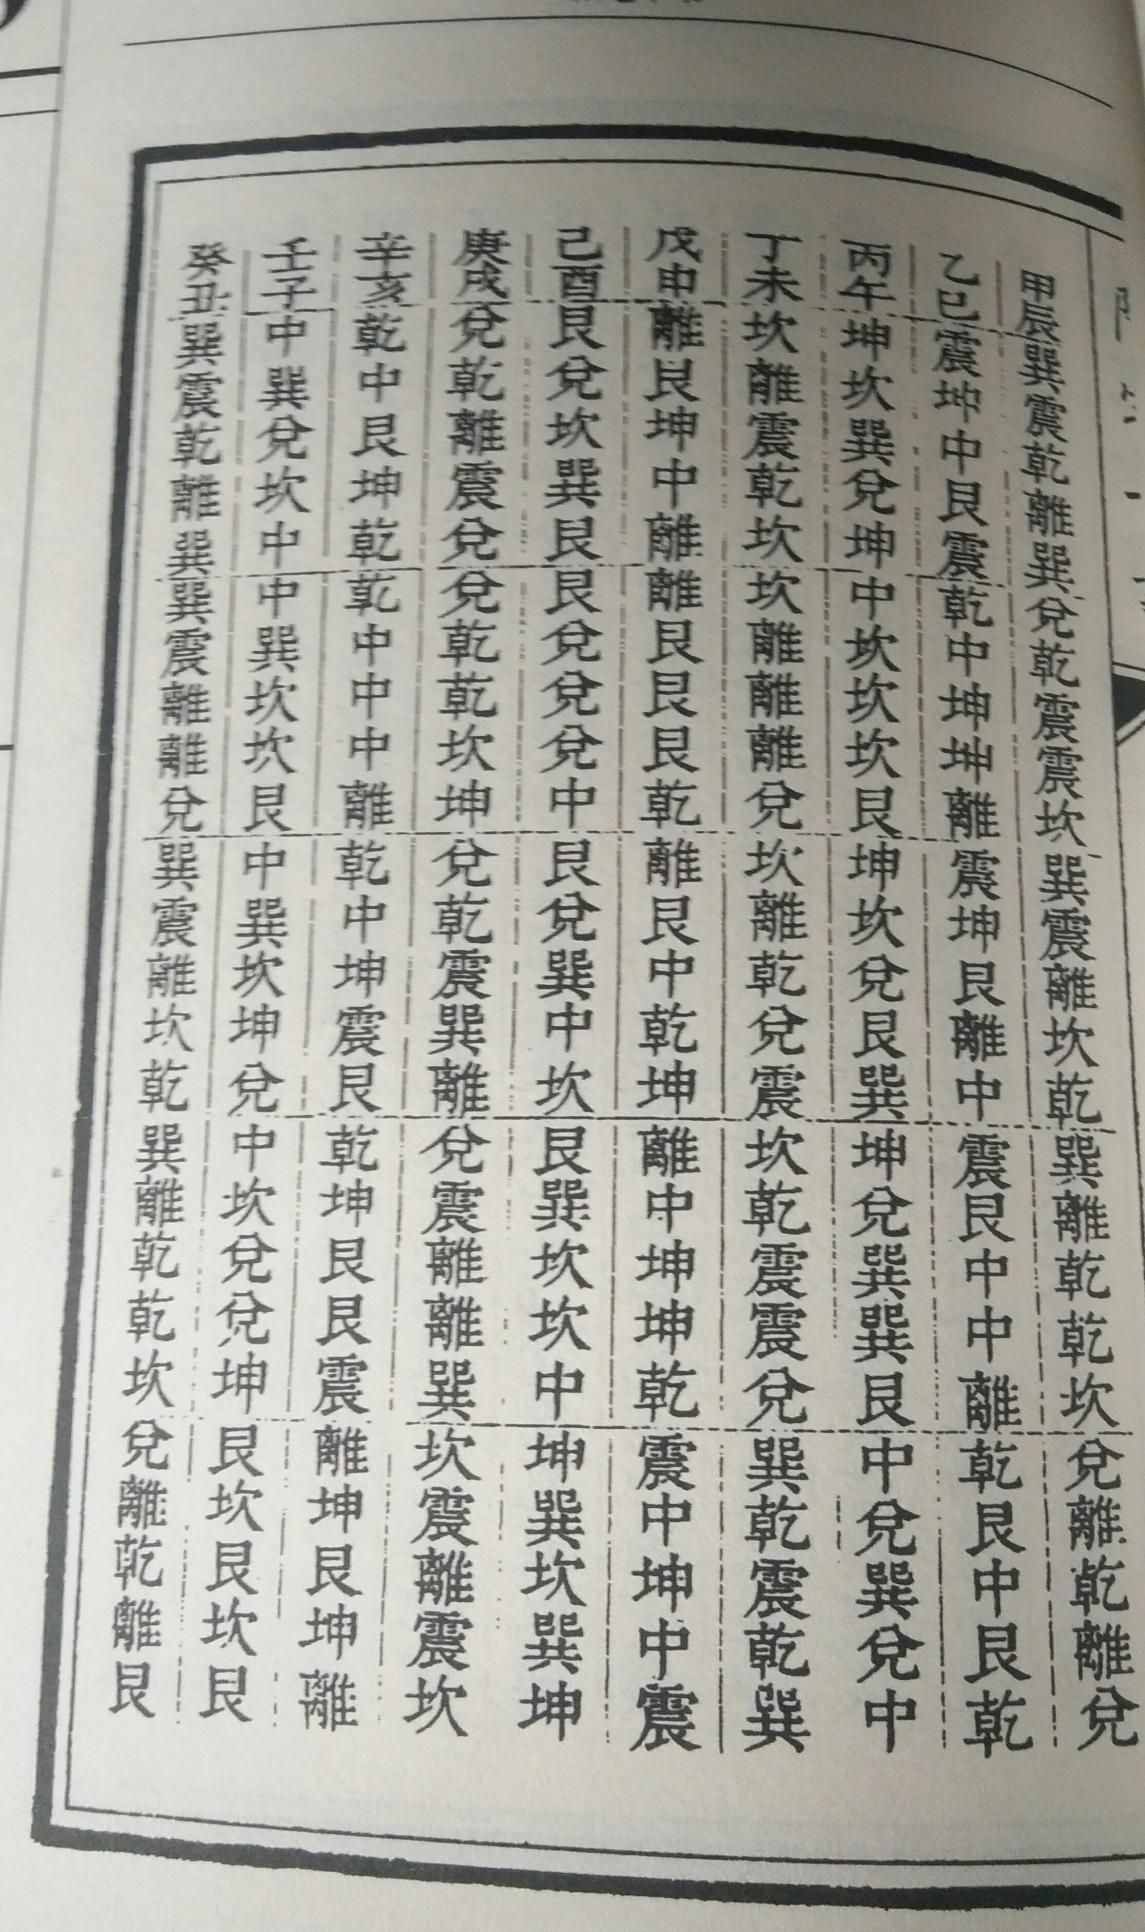 甲辰巽震乾離巽兌乾震震坎巽震離坎乾巽離乾乾坎兌離乾離兌
乙巳震坤中艮震乾中坤坤離震坤艮離中震艮中中離乾艮中艮乾
丙午坤坎巽兌坤中坎坎坎艮坤坎兌艮巽坤兌巽巽艮中兌巽兌中
丁未坎離震乾坎坎離離離兌坎離乾兌震坎乾震震兌巽乾震乾巽
戊申離艮坤中離離艮艮艮乾離艮中乾坤離中坤坤乾震中坤中震
己酉艮兌坎巽艮艮兌兌兌中艮兌巽中坎艮巽坎坎中坤巽坎巽坤
庚戌兌乾離震兌兌乾乾坎坤兌乾震巽離兌震離離巽坎震離震坎
辛亥乾中艮坤乾乾中中中離乾中坤震艮乾坤艮艮震離坤艮坤離
壬子中巽兌坎中中巽坎坎艮中巽坎坤兌中坎兌兌坤艮坎艮坎艮
癸丑巽震乾離巽巽震離離兌巽震離坎乾巽離乾乾坎兌離乾離艮